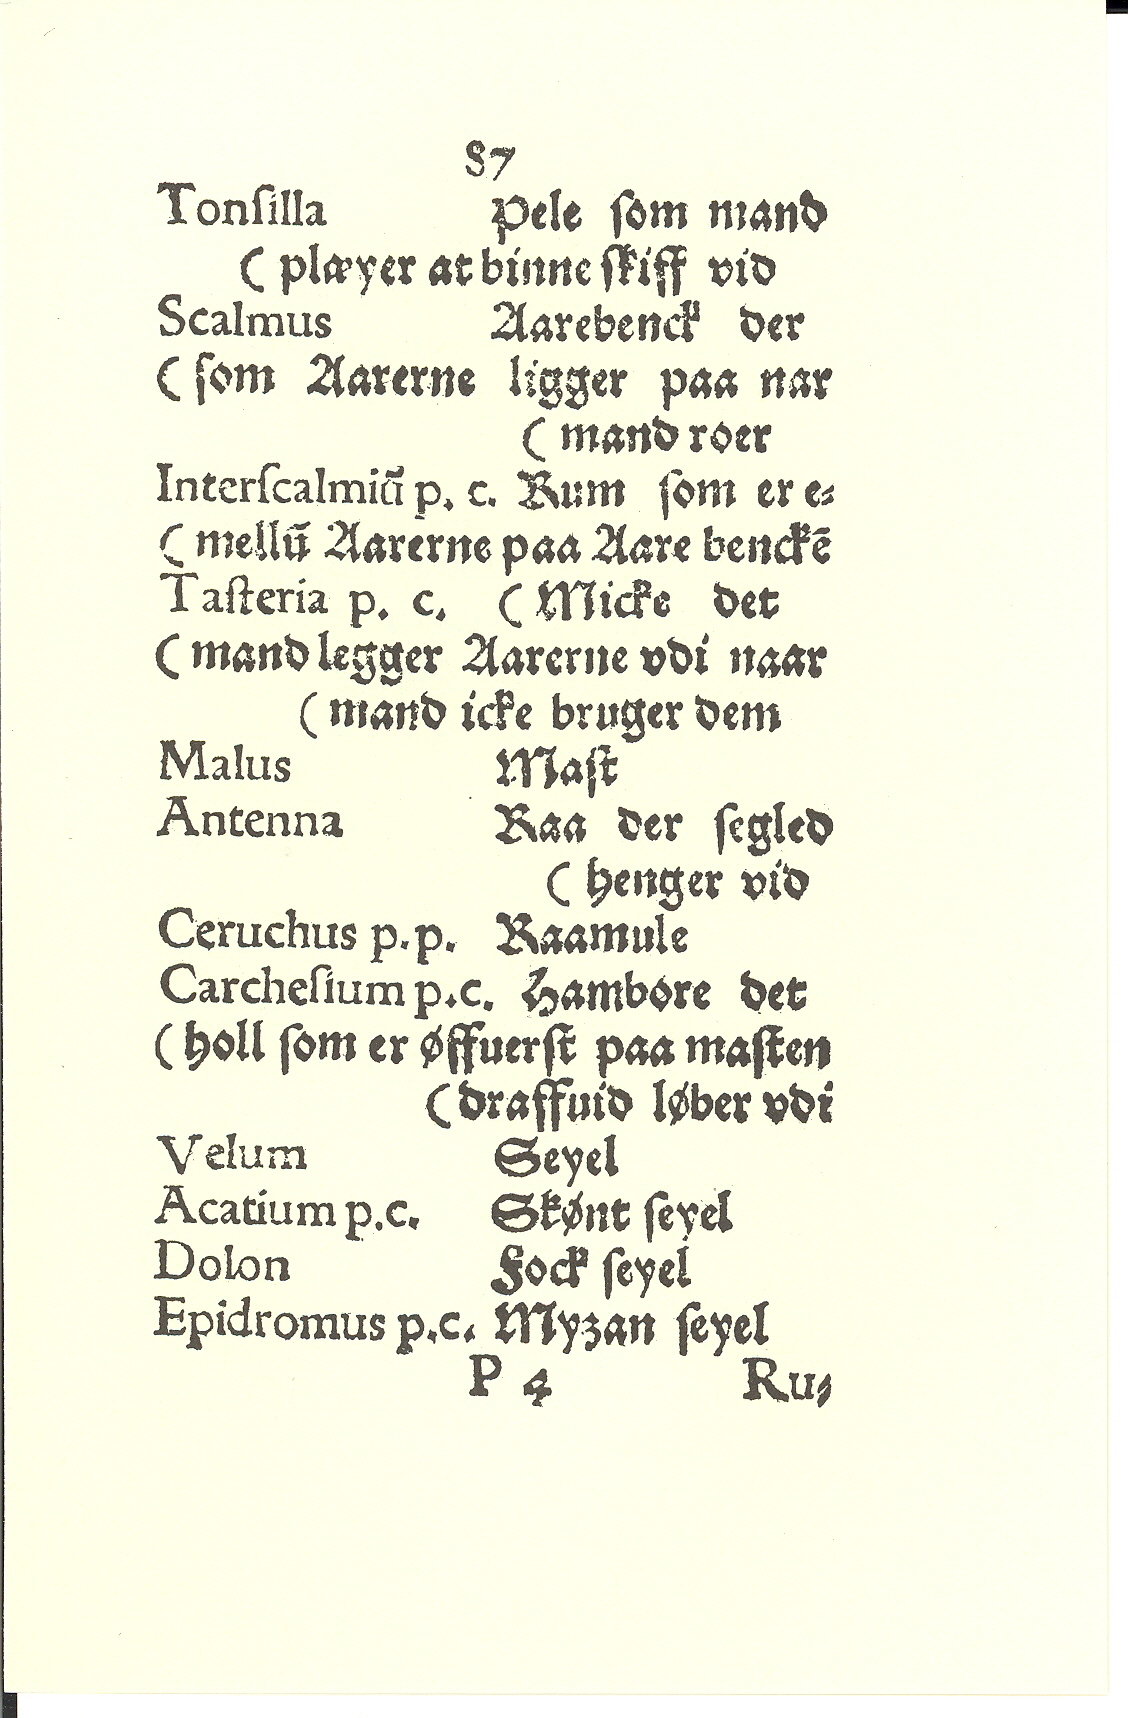 87
Tonſilla Pele ſom mand
( plæyer at binne ſkiff vid
Scalmus Aarebenck der
( ſom Aarerne ligger paa nar
( mand roer
Interſcalmiū p. c. Rum ſom er e⸗
( mellū Aarerne paa Aare benckē
Taſteria p. c. ( Micke det
( mand legger Aarerne vdi naar
( mand icke bruger dem
Malus Maſt
Antenna Raa der ſegled
( henger vid
Ceruchus p.p. Raamule
Carcheſium p.c. Hambore det
( holl ſom er øffuerſt paa maſten
( draffuid løber vdi
Velum Seyel
Acatium p.c. Skønt ſeyel
Dolon Fock ſeyel
Epidromus p.c. Myzan ſeyel
P 4 Ru⸗